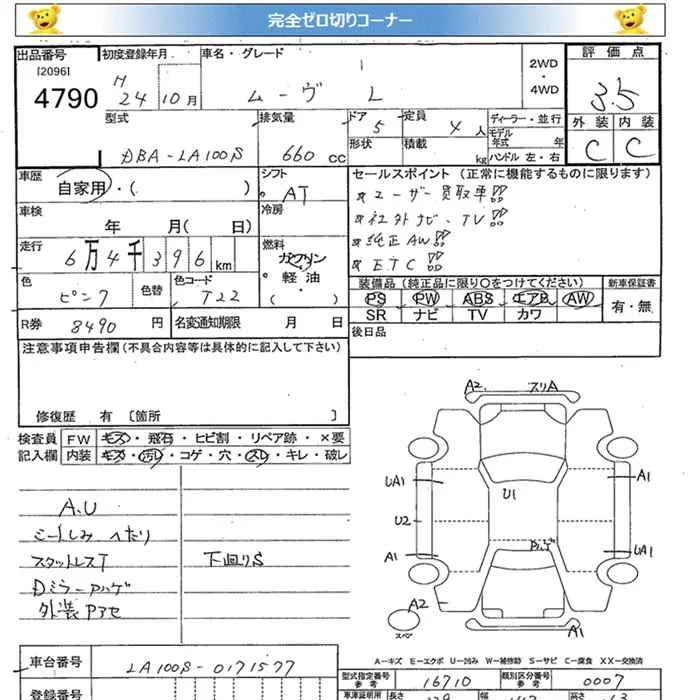 完全ゼロ切りコーナー
出品番号 初度登録年月 車名・グレード 2WD・4WD 評価点
[2096]
4790 H24年10月 ムーヴ L 3.5
型式 DBA-LA100S 排気量 660cc ドア 5 定員 4人 ディーラー・並行 外装 内装
形状 積載 kg モデル年式 年 ハンドル 左・右 C C
車歴 自家用・( ) シフト AT セールスポイント (正常に機能するものに限ります)
ユーザー買取車!!
車検 年 月( 日) 冷房 社外ナビ、TV!!
走行 6万4千396km 燃料 ガソリン・軽油・( ) 純正AW!!
ETC!!
色 ピンク 色替 色コード T22 装備品 (純正品に限り○をつけてください) 新車保証書
PS PW ABS エアB AW 有・無
R券 8490円 名変通知期限 月 日 SR ナビ TV カワ
注意事項申告欄(不具合内容等は具体的に記入して下さい) 後日品
修復歴 有 〔箇所 〕
検査員 FW キズ・飛石・ヒビ割・リペア跡・×要
記入欄 内装 キズ・汚レ・コゲ・穴・スレ・キレ・破レ
A2. スリA
UA1 A1
U1
U2
A1 UA1
A2
スペア A1
A.U
シートしみ へたり
スタットレスT 下廻りS
Dミラーハゲ
外装Pアセ
A-キズ E-エクボ U-凹み W-補修跡 S-サビ C-腐食 XX-交換済
車台番号 LA100S-0171577 型式指定番号 参考 16710 類別区分番号 参考 0007
登録番号 車庫証明用 長さ 幅 高さ